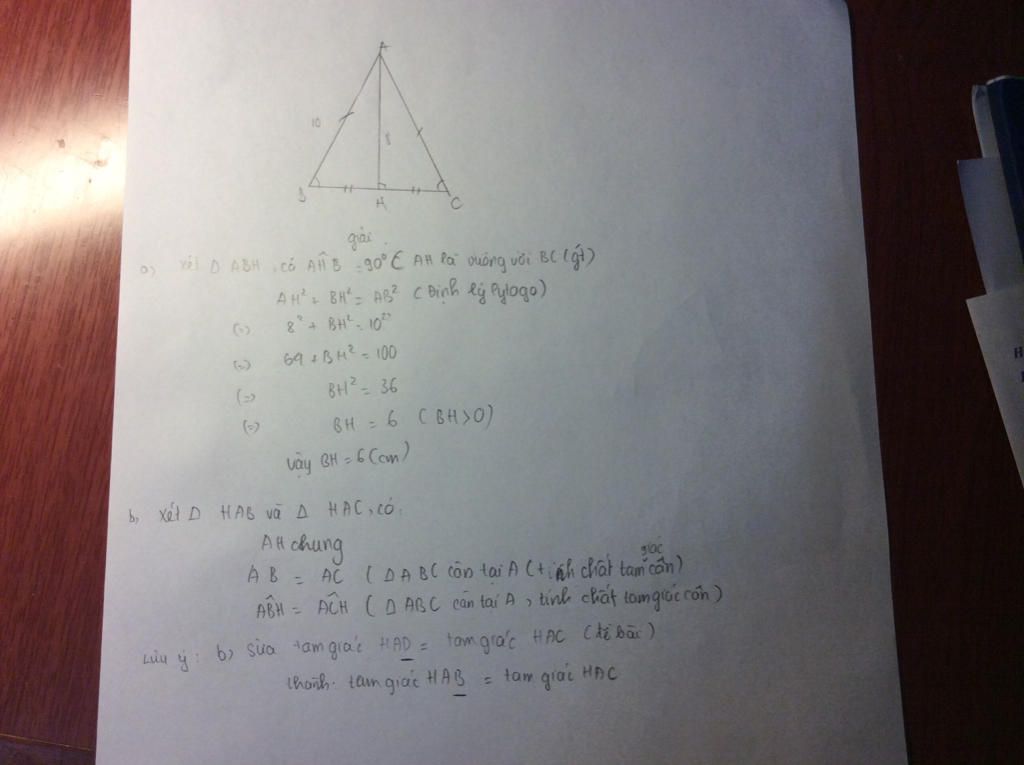 A
10
8
B
H
C
giải
a) Xét Δ ABH, có AĤB = 90° ( AH là vuông với BC (gt)
AH² + BH² = AB² (Định lý Pytago)
(=) 8² + BH² = 10²
(=) 64 + BH² = 100
(=) BH² = 36
(=) BH = 6 ( BH > 0)
vậy BH = 6 (cm)
b, Xét Δ HAB và Δ HAC, có:
AH chung
AB = AC ( Δ ABC cân tại A (tính chất tam giác cân)
AB̂H = AĈH ( Δ ABC cân tại A, tính chất tam giác cân)
Lưu ý: b) Sửa tam giác HAD = tam giác HAC (đề bài)
thành tam giác HAB = tam giác HAC